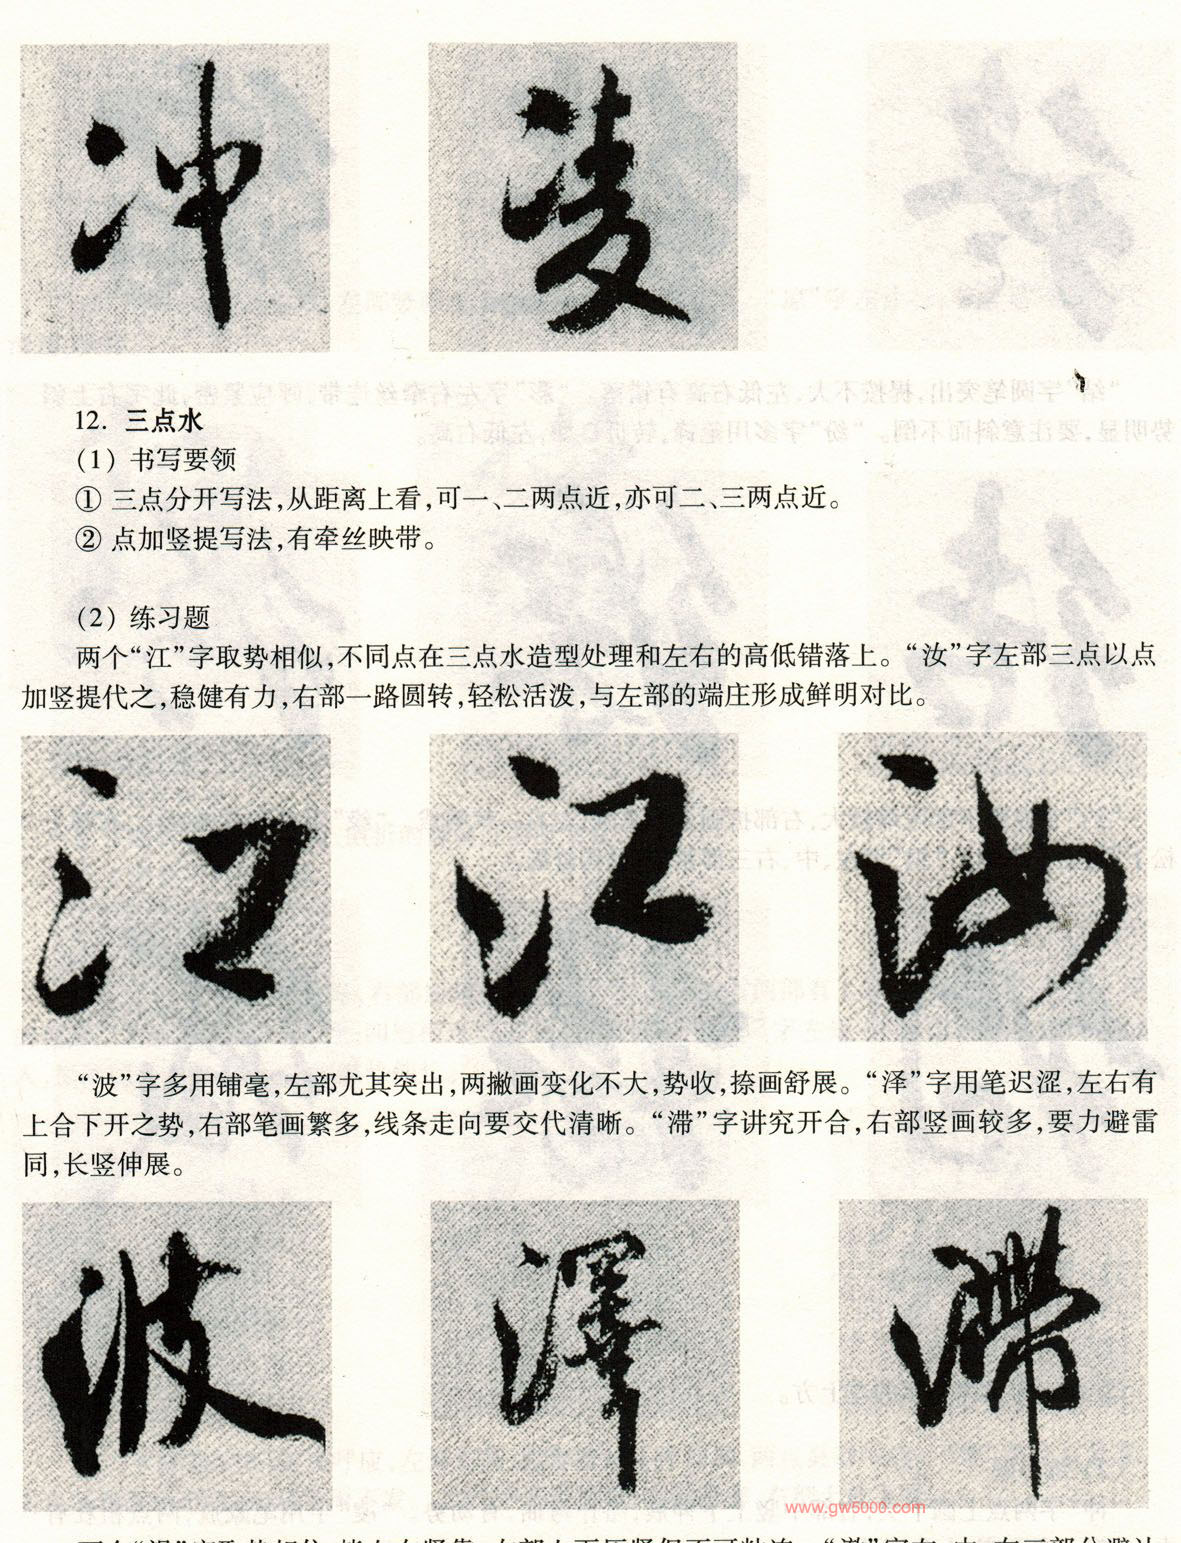 冲 凌
12. 三点水
(1) 书写要领
① 三点分开写法,从距离上看,可一、二两点近,亦可二、三两点近。
② 点加竖提写法,有牵丝映带。
(2) 练习题
两个“江”字取势相似,不同点在三点水造型处理和左右的高低错落上。“汝”字左部三点以点
加竖提代之,稳健有力,右部一路圆转,轻松活泼,与左部的端庄形成鲜明对比。
江 江 汝
“波”字多用铺毫,左部尤其突出,两撇画变化不大,势收,捺画舒展。“泽”字用笔迟涩,左右有
上合下开之势,右部笔画繁多,线条走向要交代清晰。“滞”字讲究开合,右部竖画较多,要力避雷
同,长竖伸展。
波 澤 滯
www.gw5000.com